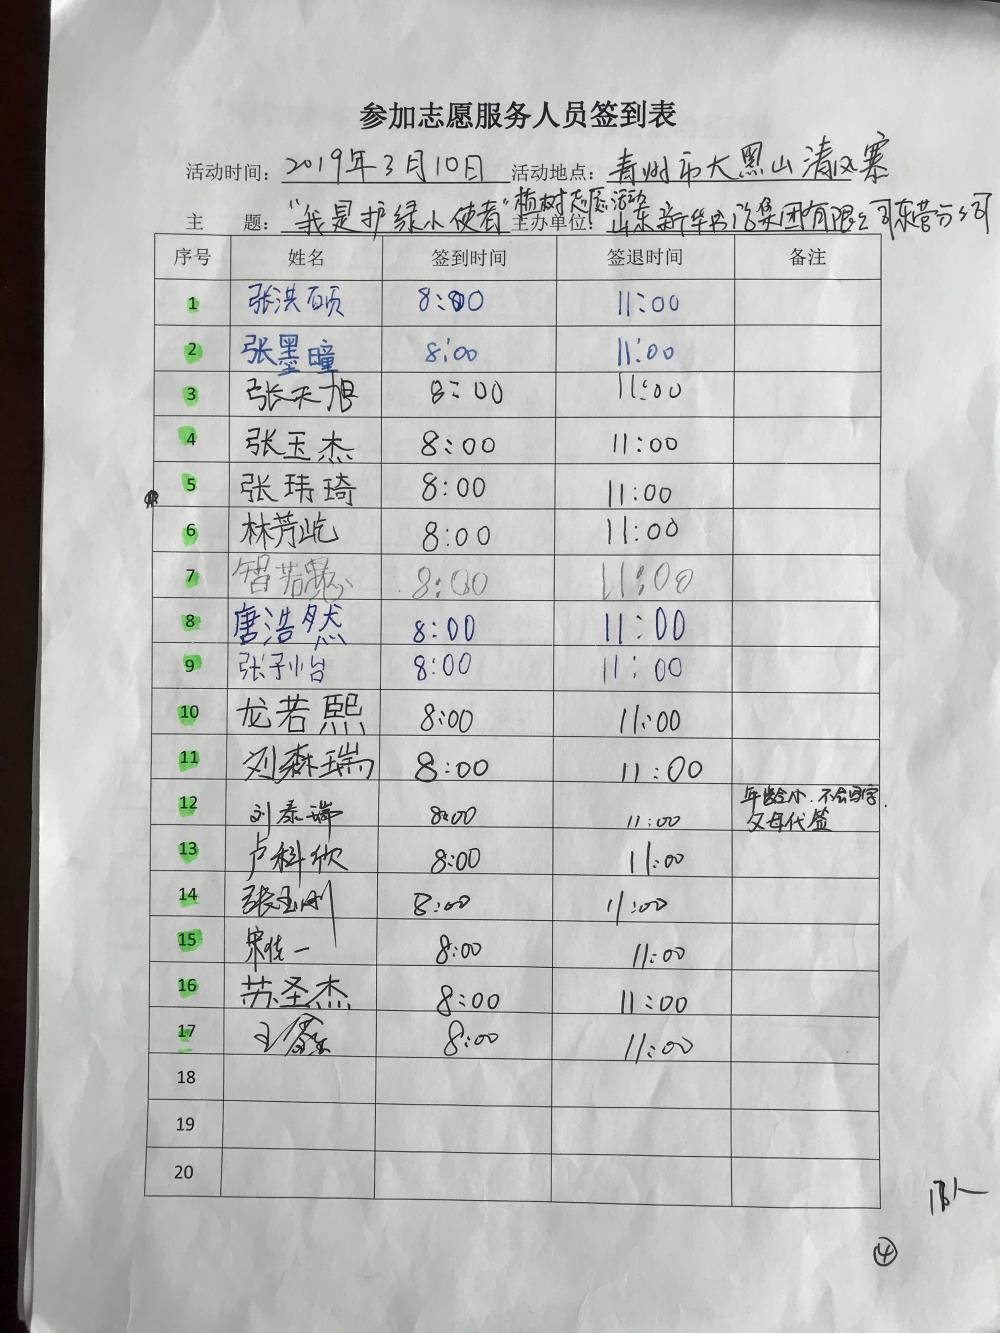 参加志愿服务人员签到表
活动时间：2019年3月10日 活动地点：青州市大黑山清风寨
主 题：“我是护绿小使者”植树志愿活动 主办单位：山东新华书店集团有限公司东营分公司
序号 姓名 签到时间 签退时间 备注
1 张洪硕 8:00 11:00
2 张墨瞳 8:00 11:00
3 张天旭 8:00 11:00
4 张玉杰 8:00 11:00
5 张玮琦 8:00 11:00
6 林芳屹 8:00 11:00
7 智若愚 8:00 11:00
8 唐浩然 8:00 11:00
9 张子怡 8:00 11:00
10 龙若熙 8:00 11:00
11 刘森瑞 8:00 11:00
12 刘泰瑞 8:00 11:00 年龄小.不会写字.
父母代签
13 卢科欣 8:00 11:00
14 张玉刚 8:00 11:00
15 宋佳一 8:00 11:00
16 苏圣杰 8:00 11:00
17 王鑫 8:00 11:00
18
19
20
④